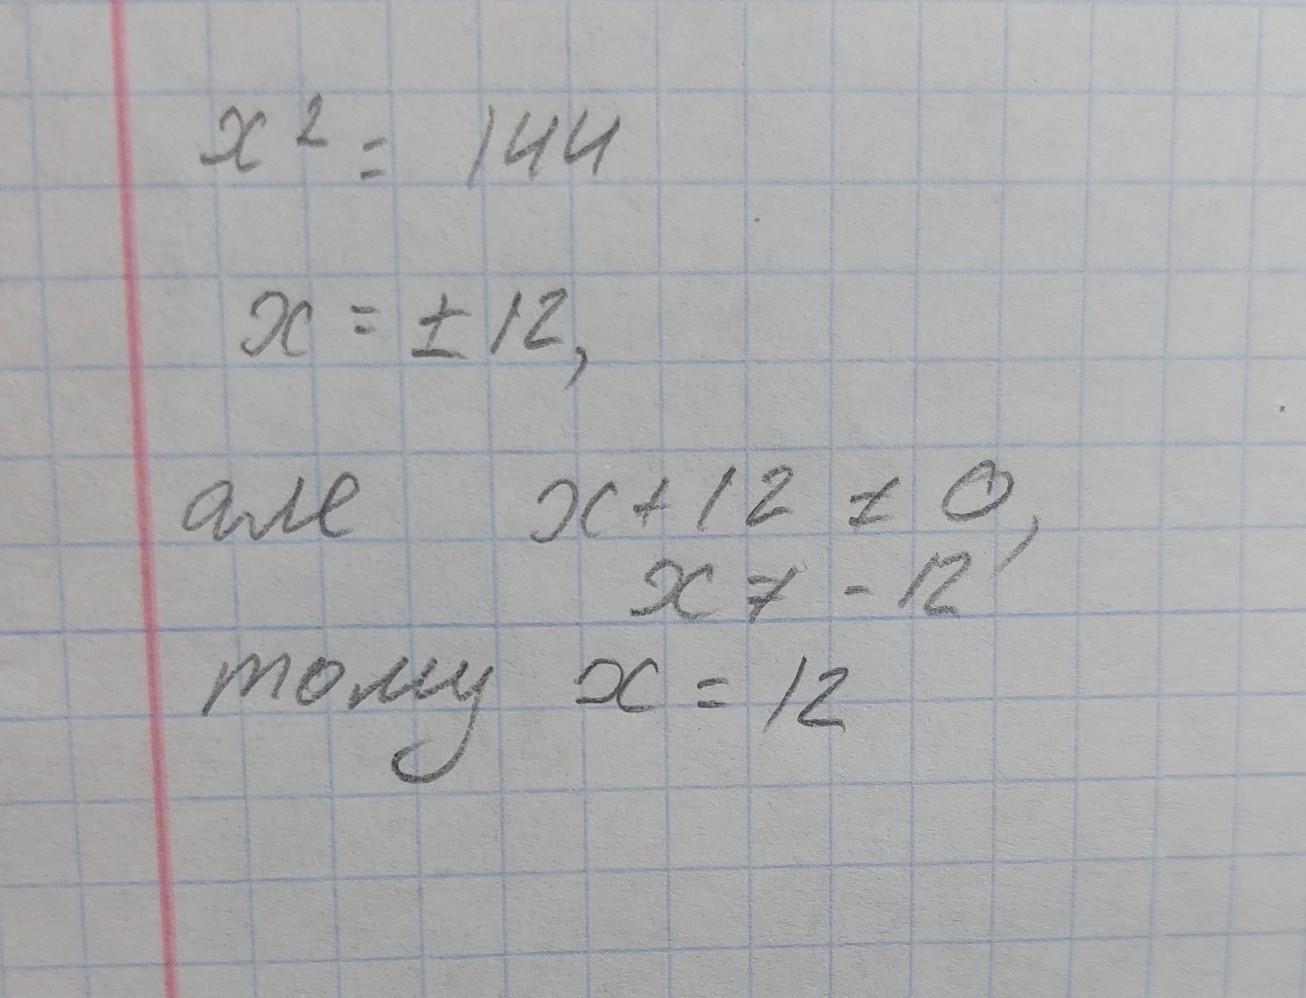 x² = 144
x = ±12,
але x+12 ≠ 0,
x ≠ -12
тому x = 12